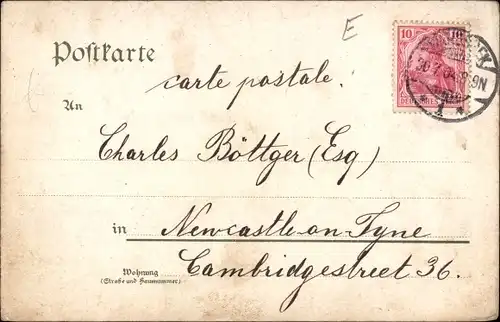 E
Postkarte
10 10
carte postale.
DEUTSCHES
An
Charles Böttger (Esq)
in Newcastle-on-Tyne
Cambridgestreet 36.
Wohnung
(Straße und Hausnummer)